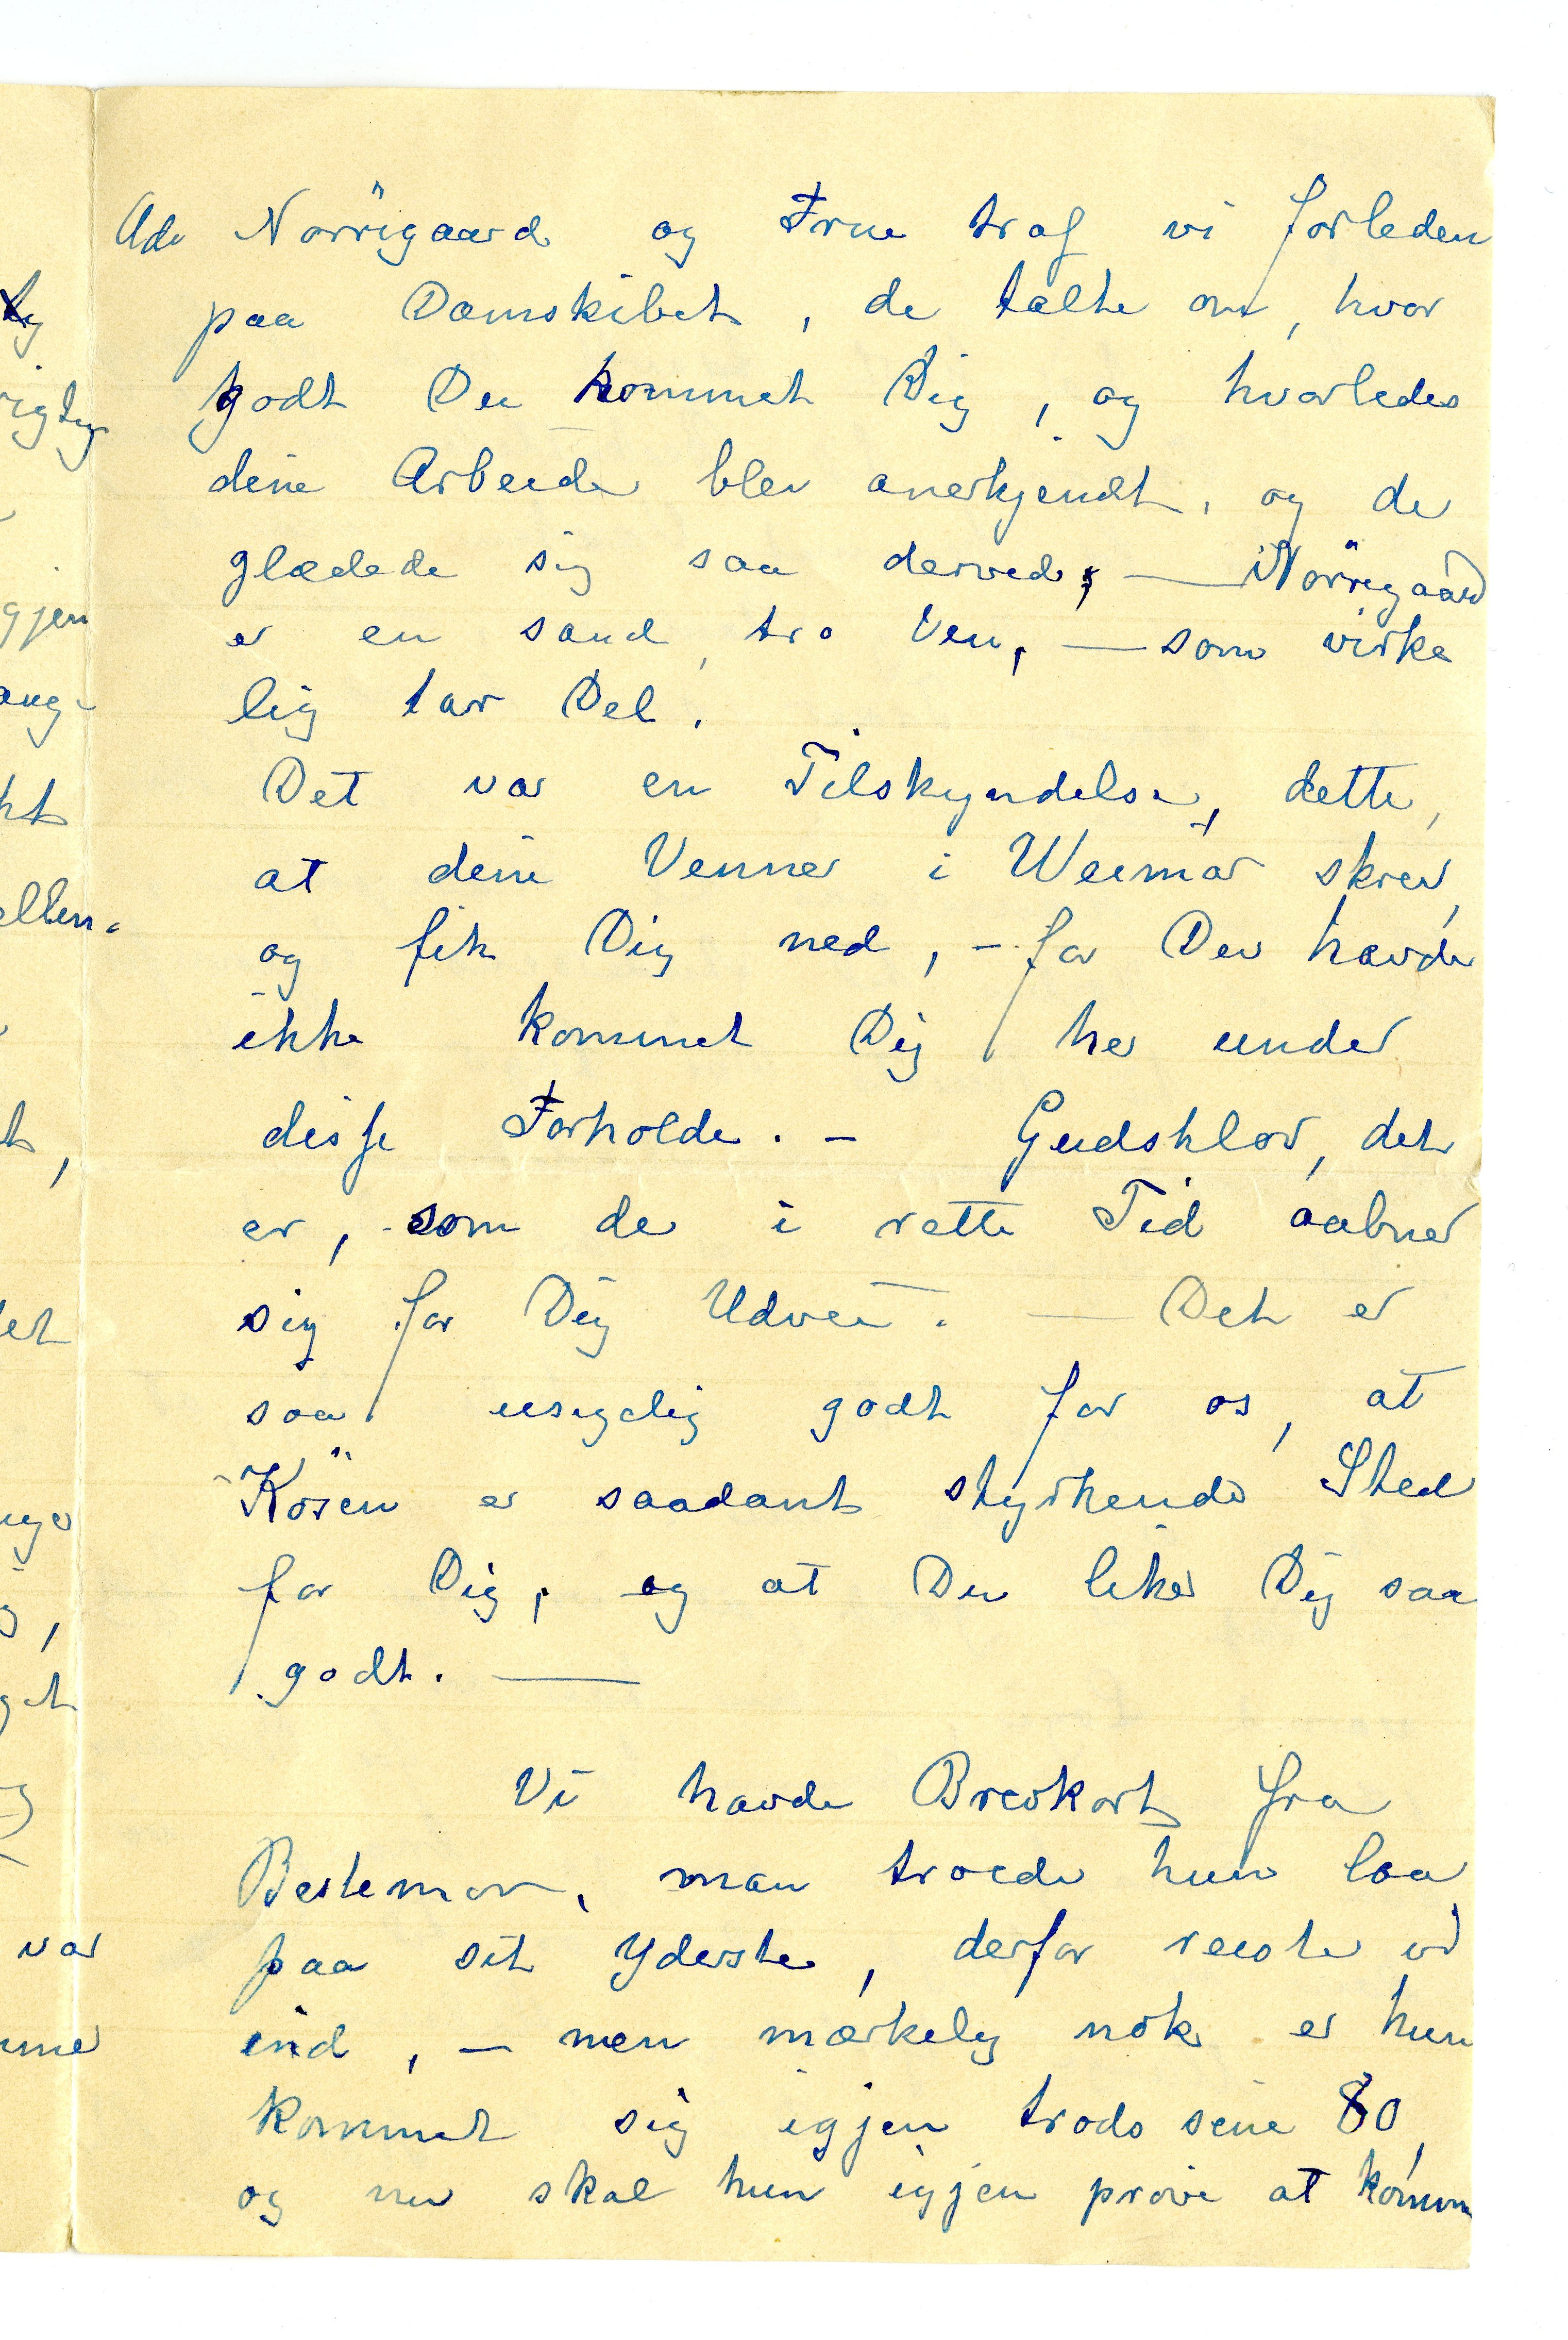 Adv Nörregaard og Frue traf vi forleden
paa Damskibet, de talte om, hvor
godt Du kommet Dig, og hvorledes
dine Arbeider blev anerkjendt, og de
glædede sig saa derved, — Nörregaard
er en sand, tro Ven, — som virke
lig tar Del.
Det var en Tilskyndelse, dette,
at dine Venner i Weimar skrev,
og fik Dig ned, – for Du havde
ikke kommet Dig her under
disse Forholde. – Gudskelov, det
er, som de i rette Tid aabner
sig for Dig Udvei. — Det er
saa usigelig godt for os, at
Kösen er saadant styrkende Sted
for Dig, og at Du liker Dig saa
godt. —
Vi havde Brevkort fra
Bestemor, man troede hun laa
paa sit Yderste, derfor reiste vi
ind, – men mærkelig nok er hun
kommet sig igjen trods sine 80,
og nu skal hun igjen prøve at komme
ig
rigtig
gjen
ang-
ht
ellem.
t,
et
nge
g,
get
var
mme